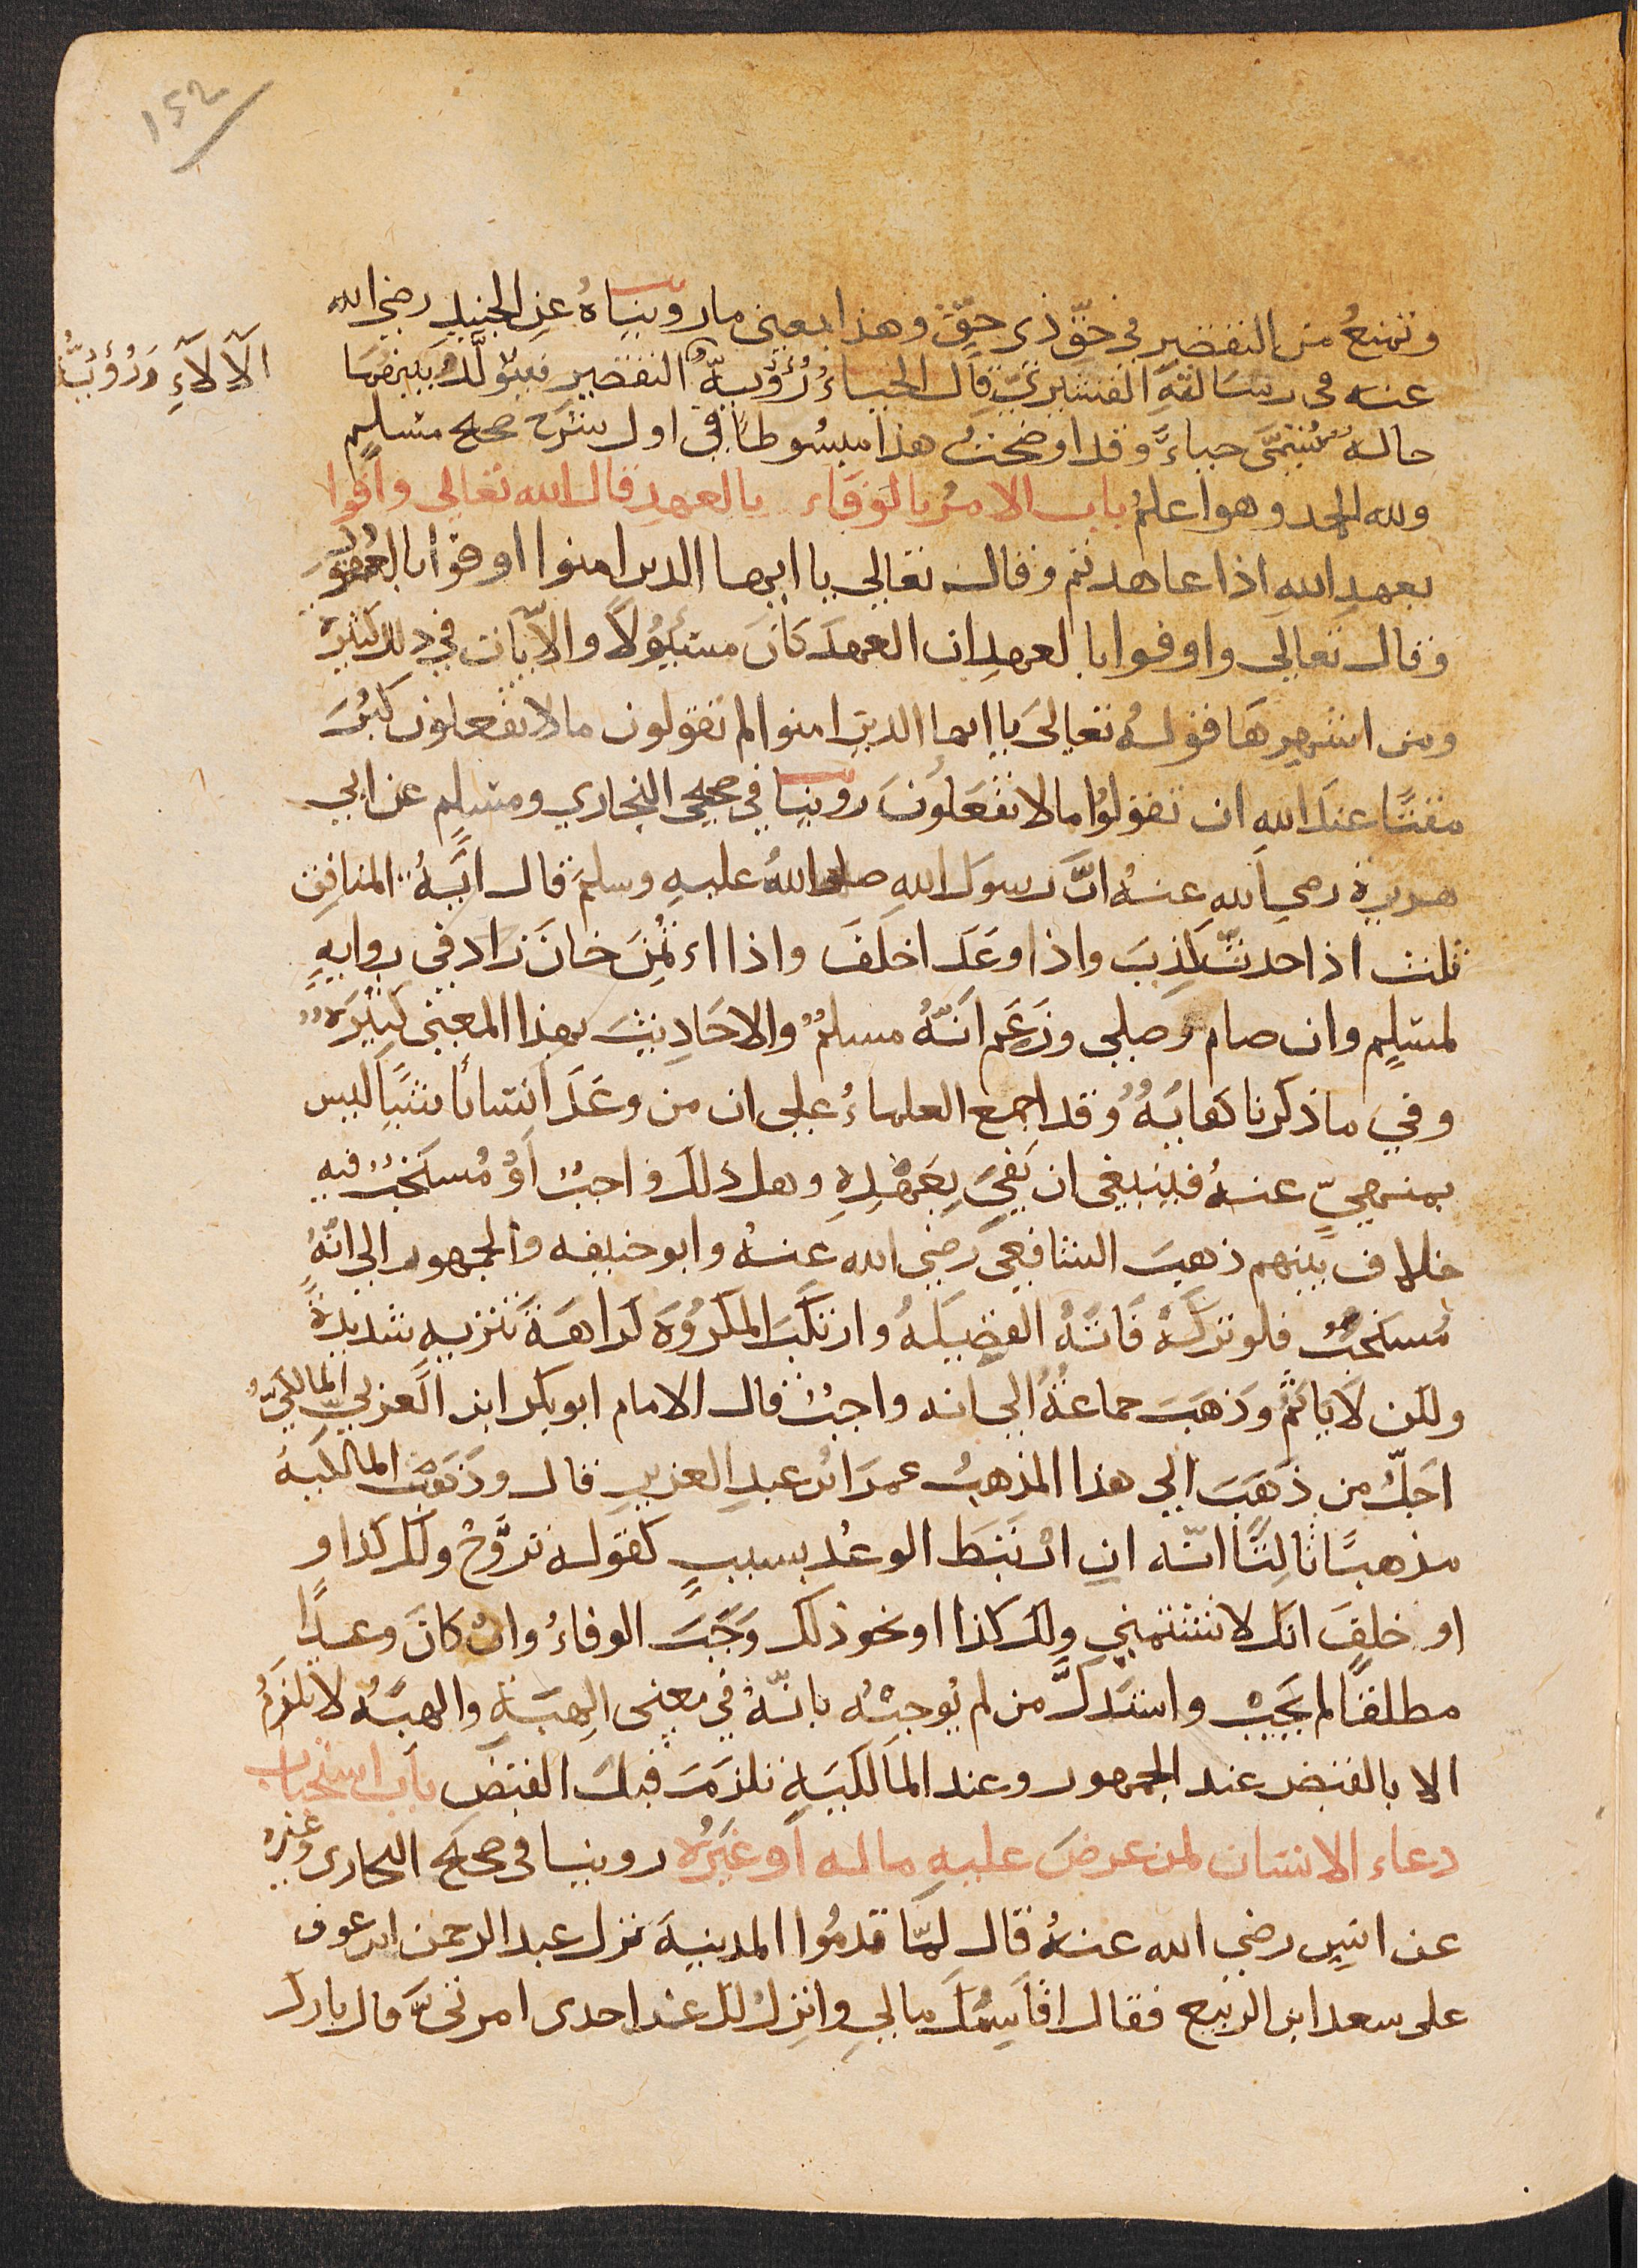 ١٤٣
وتمنعُ من التقصير في حقّ ذى حقّ وهذا بمعنى ما رويناهُ عن الجنيد رضي الله
عنه فى رسالةِ القشيريّ قال الحياءُ رُؤيةُ التقصير فيتولَّدُ بينهما
الآلآءِ وَرُؤيةُ
حالةٌ تُسَمَّى حياءً وقد اوضحتُ هذا مبسُوطاً في اول شرح صحيح مسلمٍ
ولله الحمد وهو اعلمُ باب الامرُ بالوَفَاء بالعهدِ قال الله تعالى واوفوا
بعهدِ اللهِ اذا عاهدتم وقال تعالى يا ايها الذين امنوا اوفوا بالعقود
وقال تعالَى واوفوا بالعهدِ ان العهدَ كانَ مسئولاً والآيات في ذلك كثيرة
ومن اشدها قولُه تعالىَ يا ايها الذين امنوا لم تقولون ما لا تفعلون كبُرَ
مقتًا عند الله ان تقولوُا ما لا تفعَلُونَ روينا في صحيحي البخاري ومسلم عن ابي
هريرة رضي الله عنهُ انَّ رسولَ اللهِ صلى اللهُ عليهِ وسلمَ قال ايَةُ المنافق
ثلث اذا حدثّ كذِبَ واذا وَعَدَ اخلَفَ واذا اءتُمِنَ خانَ زاد في روايةٍ
لمسلِمٍ وان صام وَصلى وزَعَم انَّهُ مسلمٌ والاحَاديثَ بهذا المعنى كثيرَةٌ
وفي ما ذكرنا كفايَةٌ وقد اجمع العلماءُ على ان من وعَدَ اِنسانًا شيًا ليس
بمنهيٍّ عنهُ فينبغى ان يَفِيَ بِعَهْدِهِ وهل ذلك واجبٌ اَوْ مُستحَبٌ فيه
خلاف بينهم ذهبَ الشافعيَ رَضي الله عنهُ وابو حنيفه والجمهور الى انّهُ
مُستحبٌ فلو تركَهُ فَاتَهُ الفضيلَهُ وارتكَبَ المكرُوَه كراهَةَ تنزيه شديدةً
ولكن لَا ياثَم وَذهَبَ جماعَةٌ الى انه واجبٌ قال الامام ابو بكر ابن العَربي المالكيّ
اَجَلُّ من ذهَبَ الى هذا المذهبُ عمرَ ابن عبدِ العزيزِ قال وذَهَبَتْ المالكيةُ
مذهبًا ثالثًا انّه ان ارتَبَطَ الوعْد بسببٍ كقوله تزوَّجْ ولك كذا و
او خلفَ انَّك لا تشتمني ولكَ كذا او نحو ذلك وَجَبَ الوفاءُ وانْ كانَ وعدًا
مطلقًا لم يجبْ واستَدَلَّ من لم يُوجبْه بانّهُ في معنى الهِبَةِ والهبَةُ لا تلزَمُ
الا بالقبض عند الجمهور وعند المالكيَةِ تلزمَ قبلَ القبض باب استحباب
دعاء الانسان لمن عرضَ عليهِ ماله اَو غيَرُه روينا في صحيح البخارى وغيره
عن انسٍ رضي الله عنهُ قال لمّا قدمُوا المدينةَ نزل عبد الرحمن ابن عوف
على سعد ابن الربيع فقال اقاسِمُكَ مالي وانزِلُ لك عن احدى امرتىَّ قال بارك